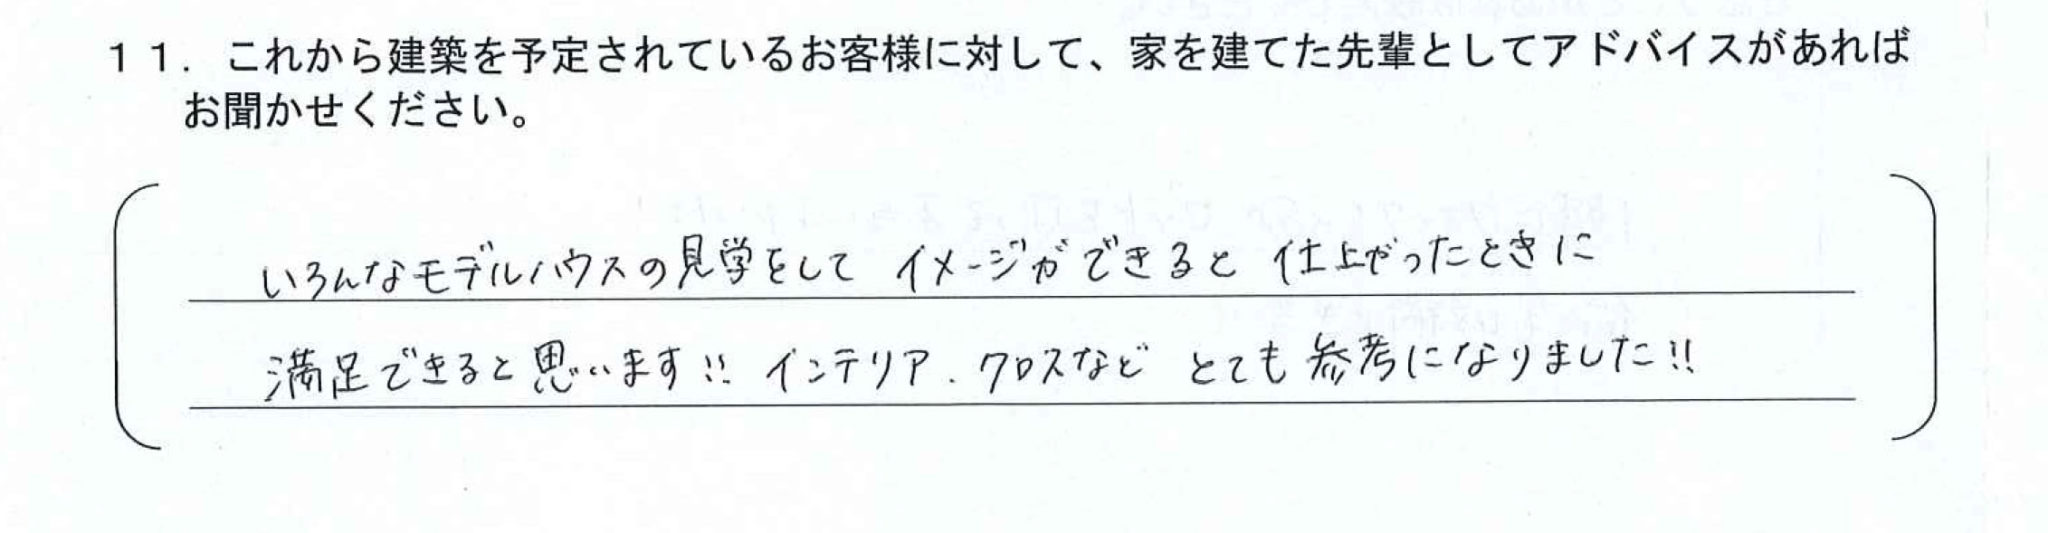 11．これから建築を予定されているお客様に対して、家を建てた先輩としてアドバイスがあれば
お聞かせください。
いろんなモデルハウスの見学をして イメージができると 仕上がったときに
満足できると思います!! インテリア．クロスなど とても参考になりました!!